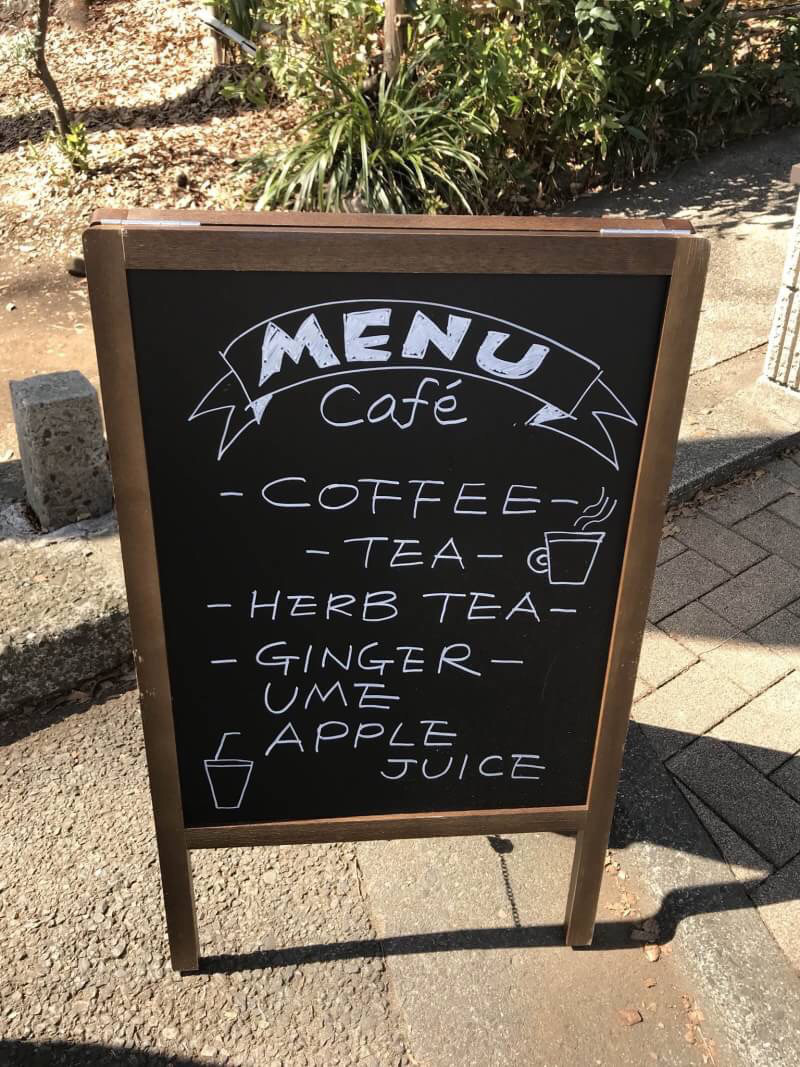 MENU
Café
- COFFEE -
- TEA -
- HERB TEA -
- GINGER -
UME
APPLE
JUICE